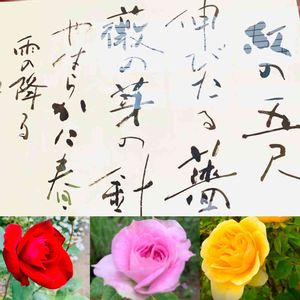 紅の五尺
伸びたる薔
薇の芽の針
やはらかに春
雨の降る